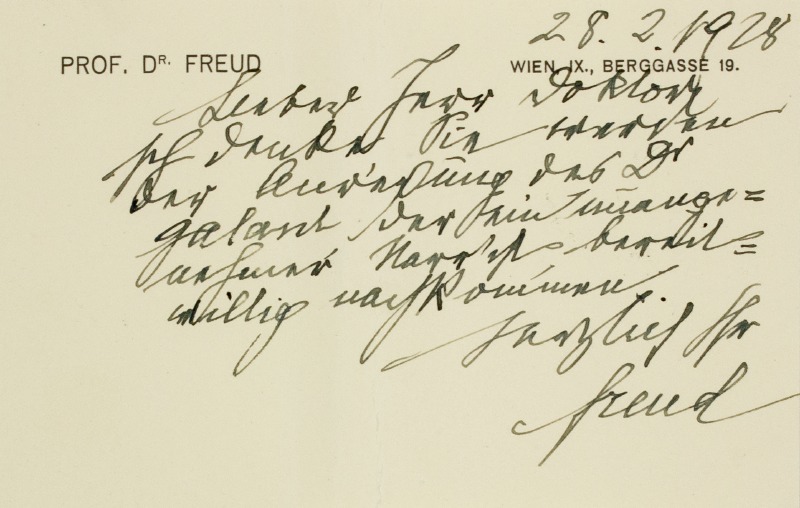 28. 2. 1928
PROF. DR. FREUD
WIEN, IX., BERGGASSE 19.
Lieber Herr Doktor
Ich denke Sie werden
der Anregung des Dr
Galant der ein unange=
nehmer Narr ist bereit=
willig nachkommen.
Herzlich Ihr
Freud